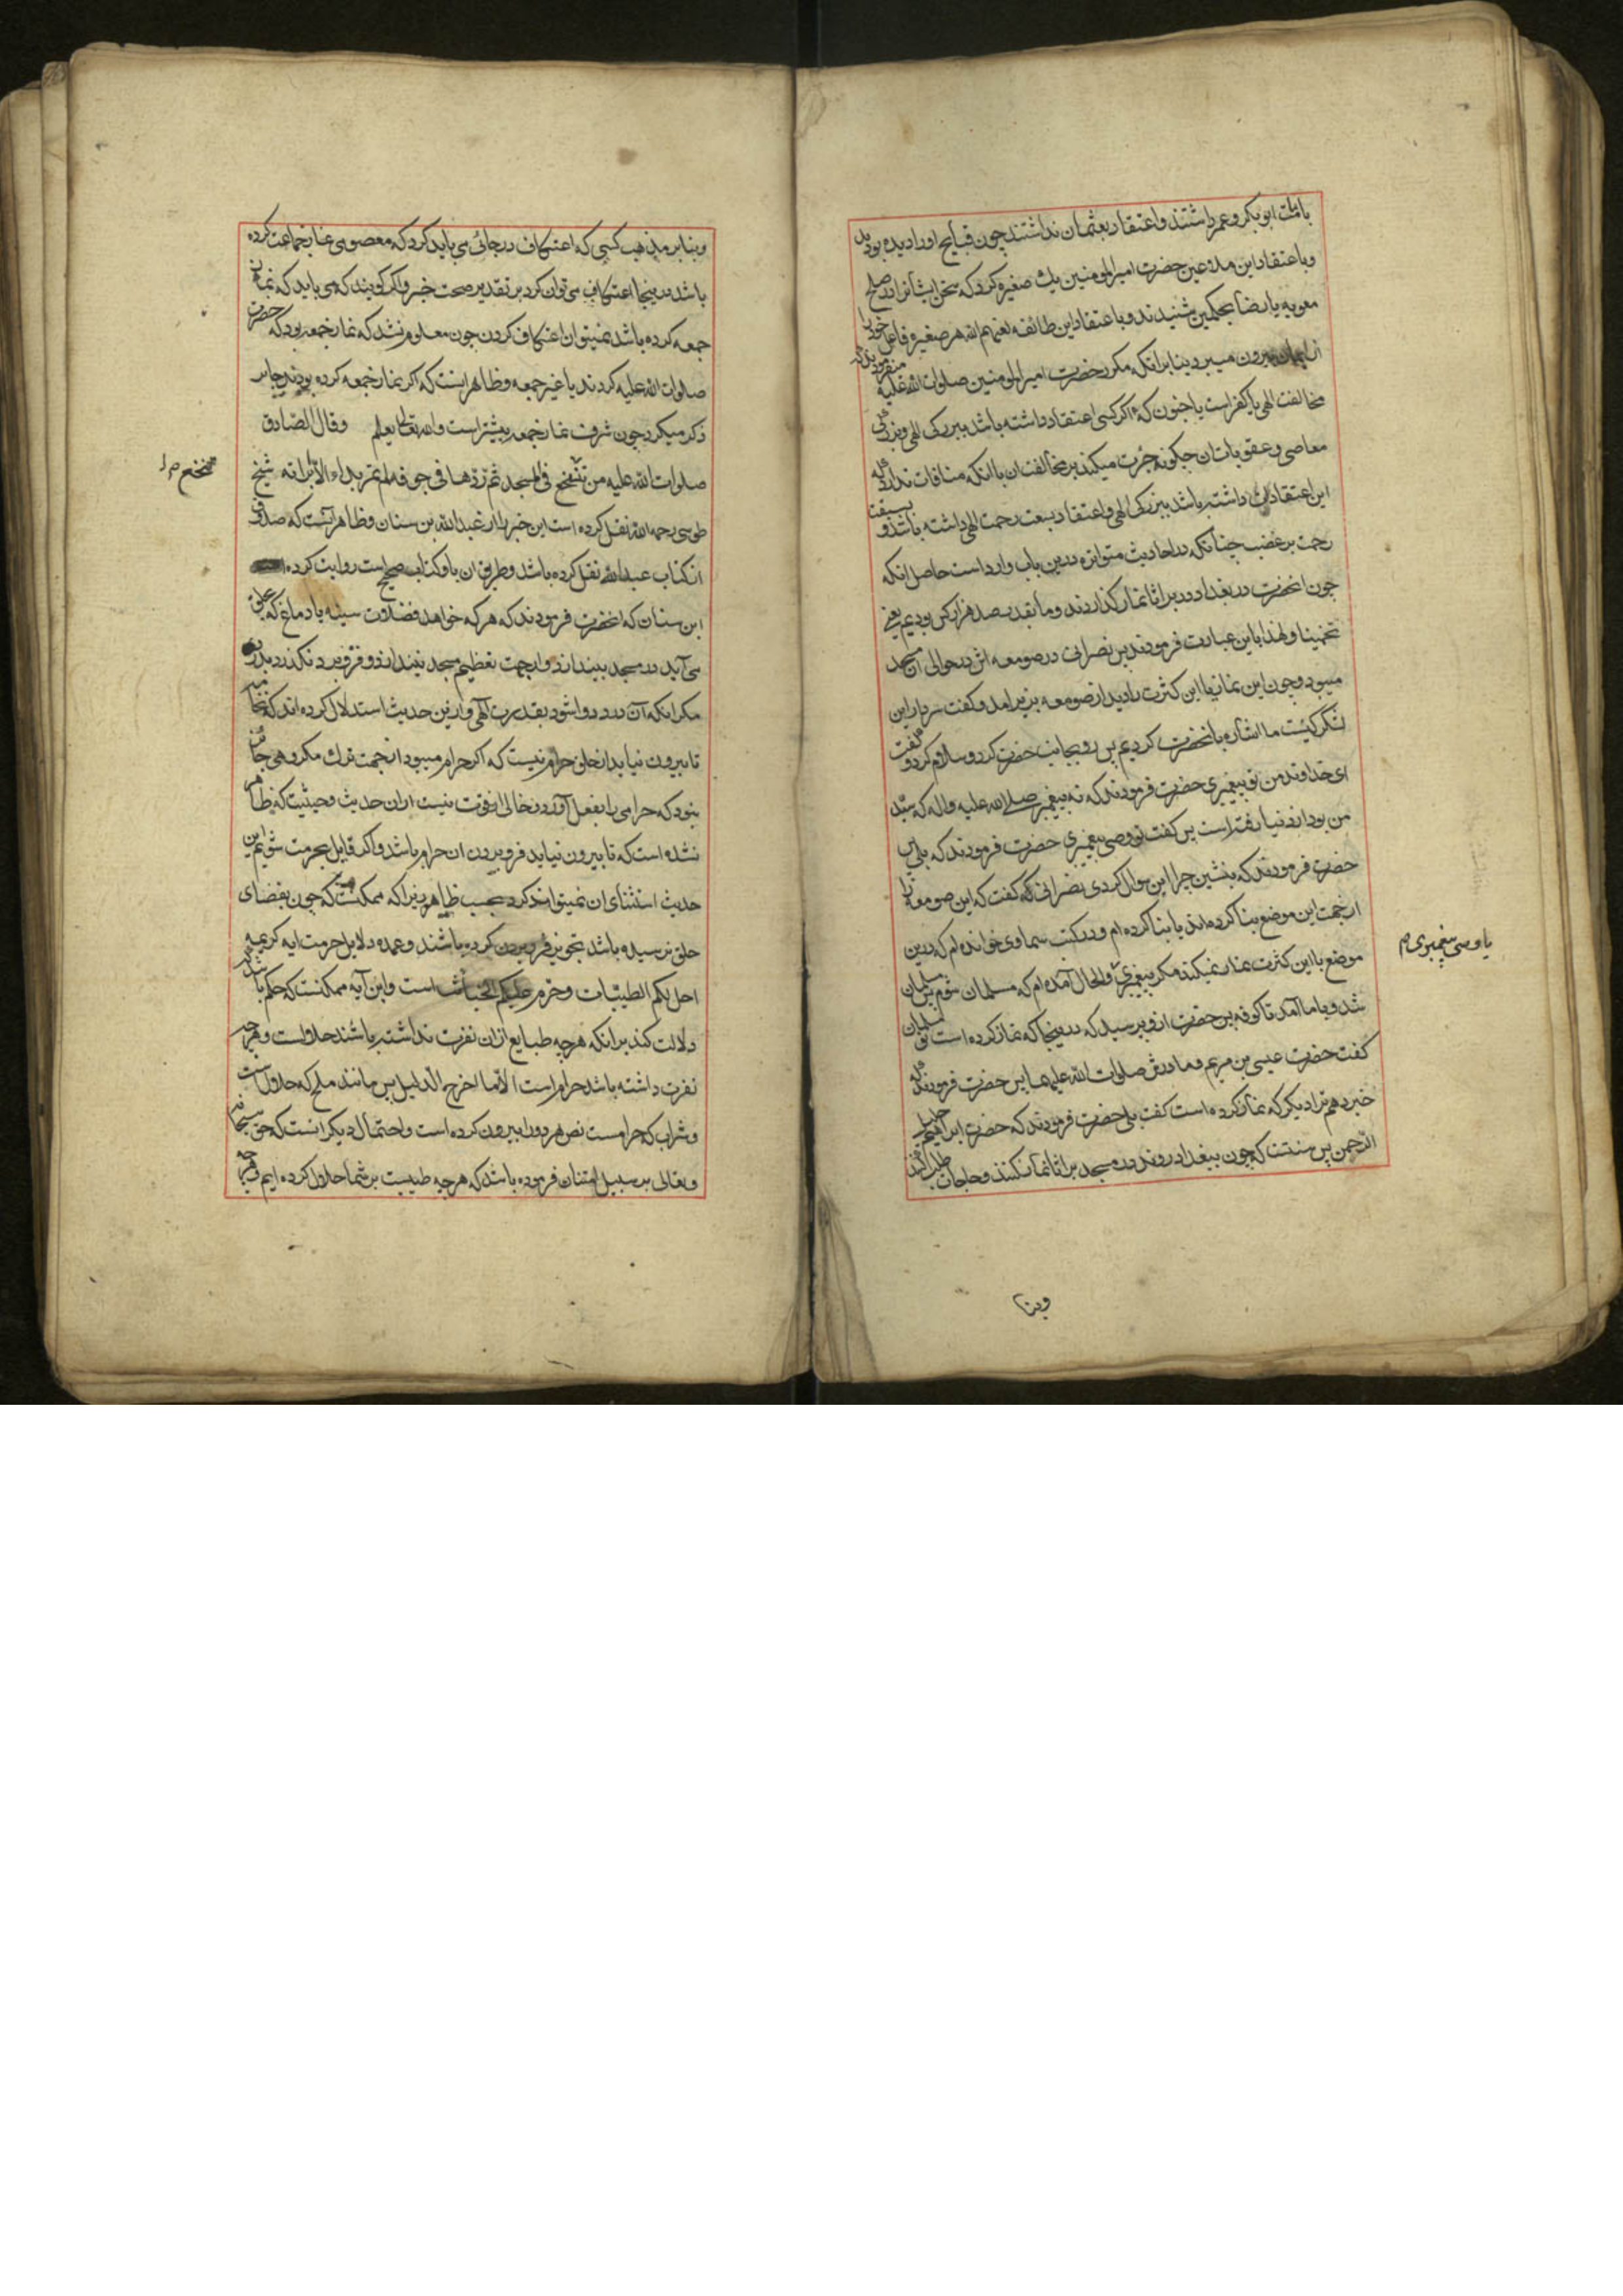 بامامت ابو بکر و عمر داشتند و اعتقاد بعثمان نداشتند چون قبایح او را دیده بودند
و باعتقاد این ملاعین حضرت امیر المومنین یک صغیره کرد که سخن ایشانرا در صلح
معویه یا رضا بحکمین شنیدند و باعتقاد این طائفه لعنهم الله هر صغیره فاعل خود را
از ایمان بیرون میبرد بنابر انکه مکرر حضرت امیر المومنین صلوات الله علیه میفرمودند که
مخالفت الهی یا کفر است یا جنون که اکر کسی اعتقاد داشته باشد ببزرکی الهی و بزرکی
معاصی و عقوبات ان چکونه جرت میکند بر مخالفت ان با انکه منافات ندارد که
این اعتقادات داشته باشد ببزرکی الهی و اعتقاد بسعت رحمت الهی داشته باشد و بسبقت
رحمت بر غضب چنانکه در احادیث متواتره درین باب وارد است حاصل انکه
چون انحضرت در بغداد در براثا نماز کذاردند و ما بقدر صد هزار کس بودیم یعنی
تخمینا و لهذا باین عبارت فرمودند پس نصرانی در صومعه اش در حوالی ان مسجد
میبود و چون این نماز با این کثرت را دید از صومعه بزیر امد و کفت سردار این
لشکر کیست ما اشاره بانحضرت کردیم پس رو بجانب حضرت کرد و سلام کرد و کفت
ای خداوند من تو پیغمبری حضرت فرمودند که نه پیغمبر صلی الله علیه واله که سید
من بود از دنیا رفته است پس کفت تو وصی پیغمبری حضرت فرمودند که بلی پس
حضرت فرمودند که بنشین چرا این سوال کردی نصرانی کفت که این صومعه را
از جهت این موضع بنا کرده اند یا بنا کرده ام و در کتب سماوی خوانده ام که درین
موضع با این کثرت نماز نمیکند مکر پیغمبری و الحال آمده ام که مسلمان شوم پس مسلمان
شد و با ما آمد تا کوفه پس حضرت ازو پرسید که در ینجا که نماز کرده است
کفت حضرت عیسی بن مریم و مادرش صلوات الله علیهما پس حضرت فرمودند که
خبر دهم ترا دیکر که نماز کرده است کفت بلی حضرت فرمودند که حضرت ابراهیم خلیل
الرحمن پس سنتست که چون ببغداد روند در مسجد براثا نماز کنند و حاجات طلب کنند
یا وصی پیغمبری م
وبنا
وبنابر مذهب کسی که اعتکاف در جائی می باید کرد که معصومی نماز جماعت کرده
باشد در ینجا اعتکاف می توان کرد بر تقدیر صحت خبر و اکر کویند که می باید که نماز
جمعه کرده باشد نمیتوان اعتکاف کردن چون معلوم نشد که نماز جمعه بود که حضرت
صلوات الله علیه کردند یا غیر جمعه و ظاهر اینست که اکر نماز جمعه کرده بودند جابر
ذکر میکرد چون شرف نماز جمعه بیشتر است و الله تعالی یعلم وقال الصادق
صلوات الله علیه من تنخع فی المسجد ثم ردها فی جوفه لم تمر بداء الا ابراته شیخ
طوسی رحمه الله نقل کرده است این خبر را از عبد الله بن سنان و ظاهر آنست که صدوق
از کتاب عبد الله نقل کرده باشد و طریق ان باو کتاب صحیح است روایت کرده است
ابن سنان که انحضرت فرمودند که هر که خواهد فضلات سینه یا دماغ که بحلق
می آید در مسجد بیندازد و از جهت تعظیم مسجد نیندازد و فرو برد نکذرد بدردی
مکر انکه آن درد دوا شود بقدرت الهی و ازین حدیث استدلال کرده اند که نخامه
تا بیرون نیاید از حلق حرام نیست که اکر حرام میبود از جهت ترک مکروهی جایز
نبود که حرامی را بفعل آورد و خالی از قوت نیست از ان حدیث و حیثیت که ظاهر
نشده است که تا بیرون نیاید فرو بردن ان حرام باشد و اکر قایل بحرمت شویم این
حدیث استثنای ان نمیتواند کرد بحسب ظاهر زیرا که ممکنست که چون بفضای
حلق نرسیده باشد تجویز فرو بردن کرده باشند و عمده دلایل حرمت ایه کریمه
احل لکم الطیبات و حرم علیکم الخبائث است و این آیه ممکنست که حکم باشد
دلالت کند بر انکه هر چه طبایع از ان نفرت نداشته باشند حلالست و هر چه
نفرت داشته باشد حرام است الا ما اخرج الدلیل پس مانند ملخ که حلال است
و شراب که حرامست نص هر دو را بیرون کرده است و احتمال دیکر انست که حق سبحانه
و تعالی بر سبیل امتنان فرموده باشد که هر چه طیبست بر شما حلال کرده ایم و هر چه